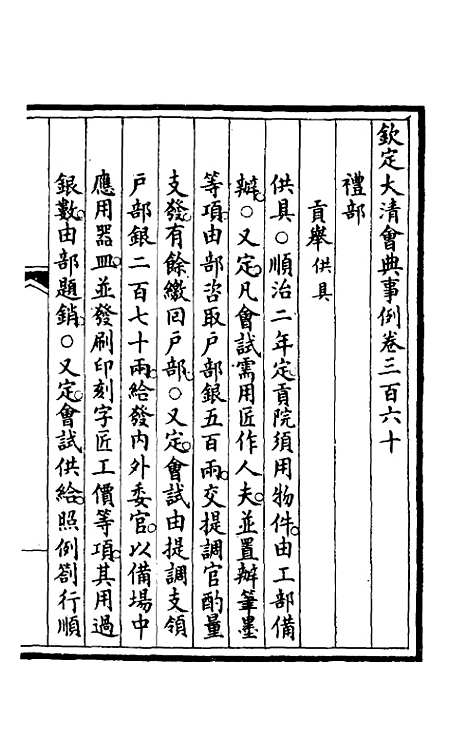 欽定大清會典事例卷三百六十
禮部
貢舉供具
供具○順治二年定貢院須用物件由工部備
辦○又定凡會試需用匠作人夫並置辦筆墨
等項由部咨取戶部銀五百兩交提調官酌量
支發有餘繳回戶部○又定會試由提調支領
戶部銀二百七十兩給發內外委官以備場中
應用器皿並發刷印刻字匠工價等項其用過
銀數由部題銷○又定會試供給照例劄行順